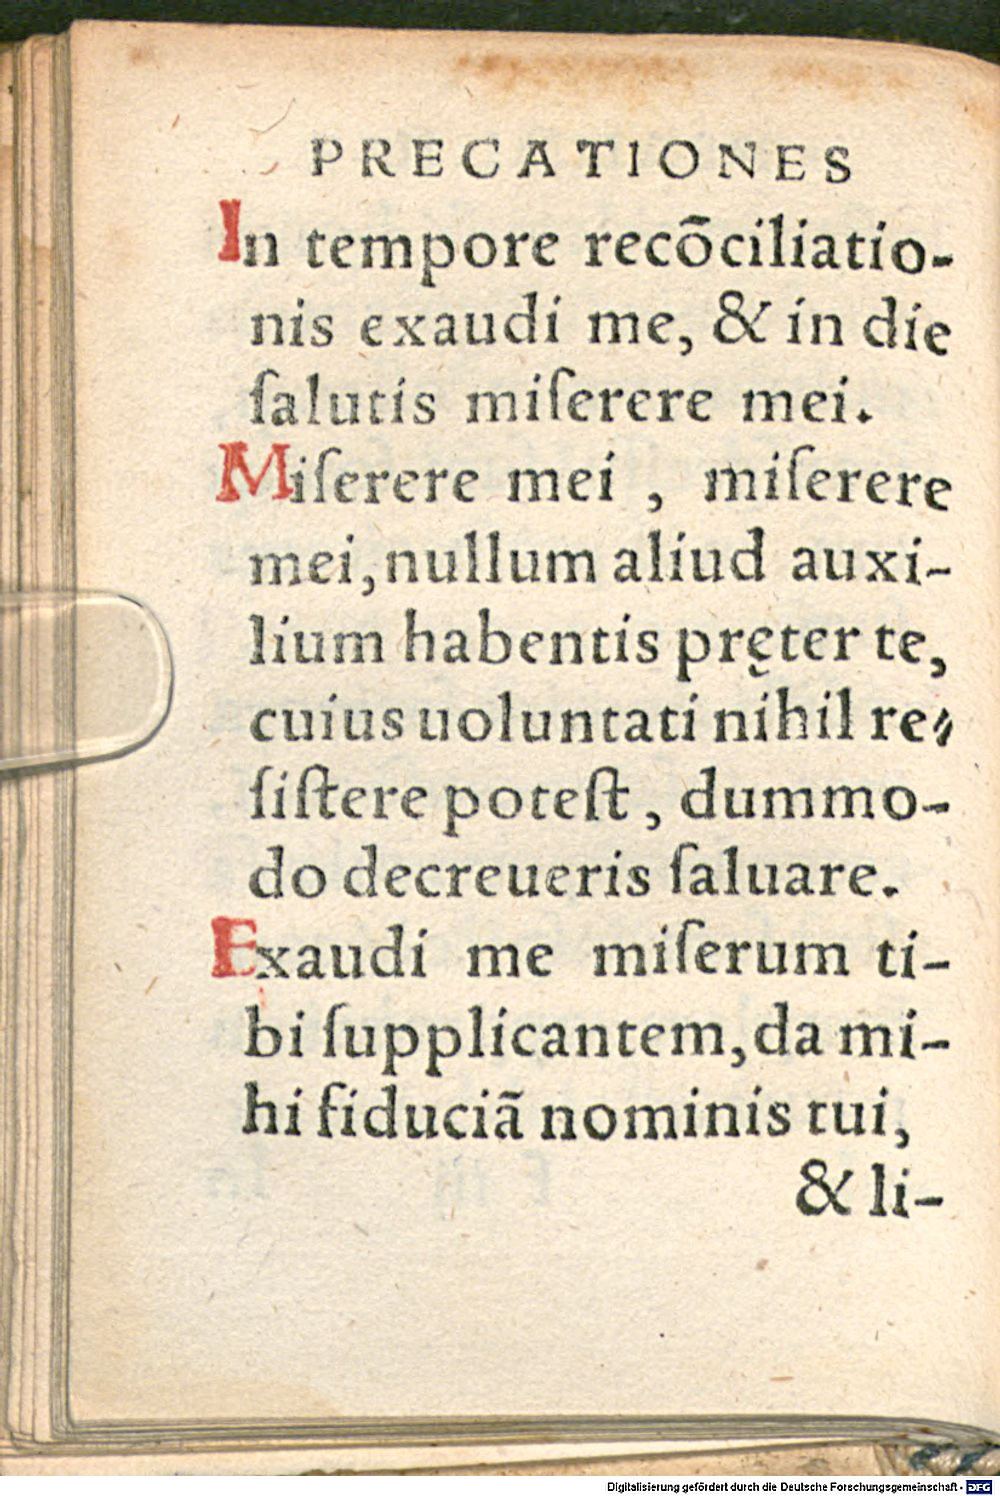 PRECATIONES
In tempore recōciliatio-
nis exaudi me, & in die
ſalutis miſerere mei.
Miſerere mei , miſerere
mei, nullum aliud auxi-
lium habentis pręter te,
cuius uoluntati nihil re-
ſiſtere poteſt, dummo-
do decreueris ſaluare.
Exaudi me miſerum ti-
bi ſupplicantem, da mi-
hi fiduciã nominis tui,
& li-
Digitalisierung gefördert durch die Deutsche Forschungsgemeinschaft - DFG